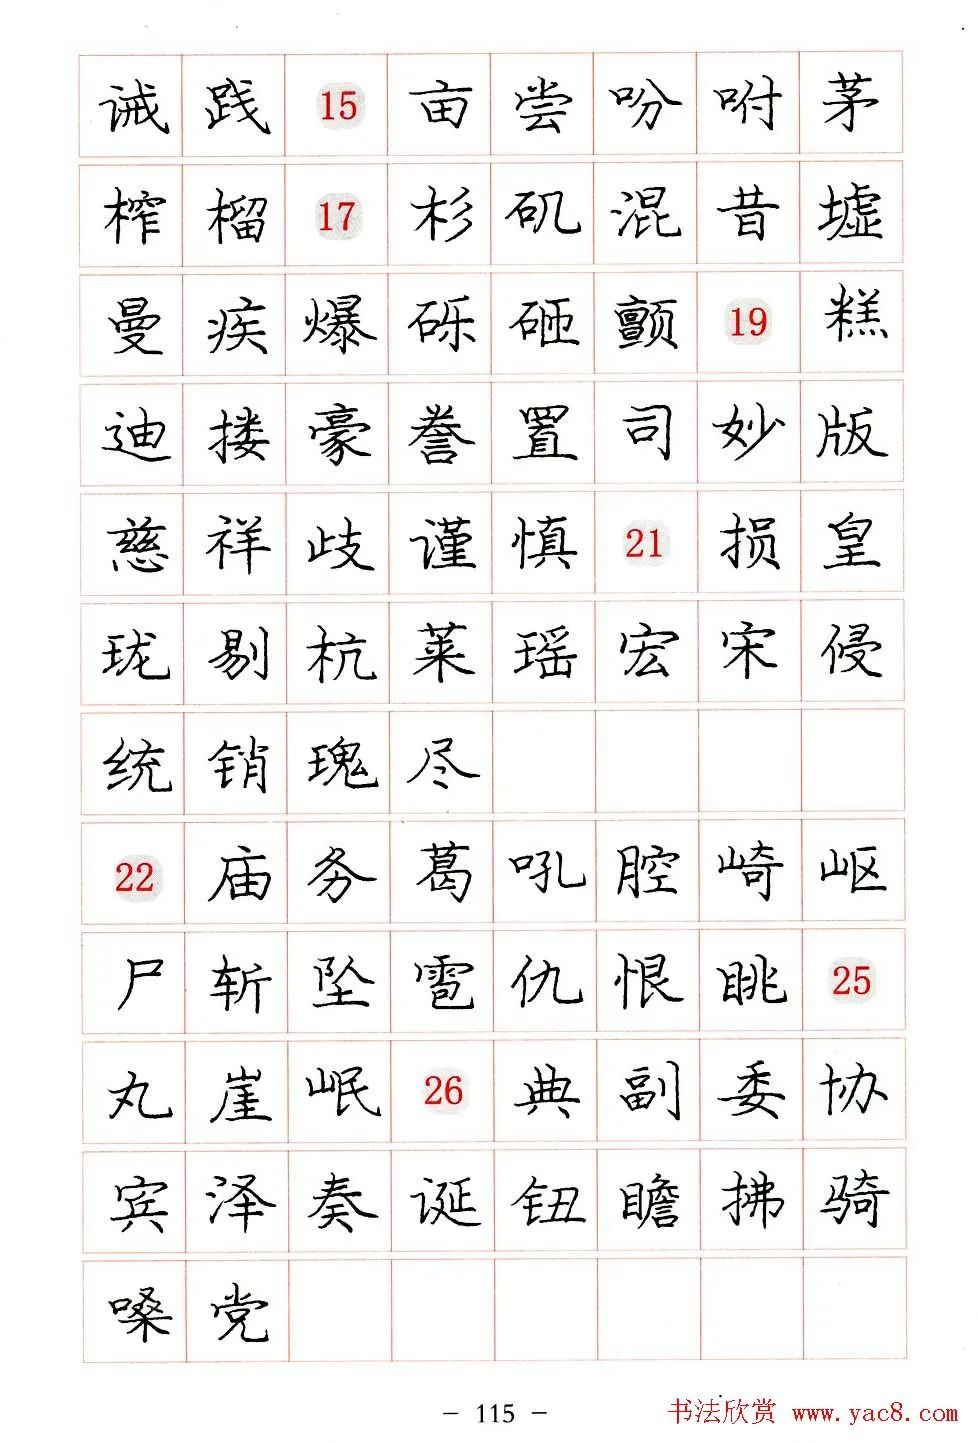 诫 践 15 亩 尝 吩 咐 茅
榨 榴 17 杉 矶 混 昔 墟
曼 疾 爆 砾 砸 颤 19 糕
迪 搂 豪 誉 置 司 妙 版
慈 祥 歧 谨 慎 21 损 皇
珑 剔 杭 莱 瑶 宏 宋 侵
统 销 瑰 尽
22 庙 务 葛 吼 腔 崎 岖
尸 斩 坠 雹 仇 恨 眺 25
丸 崖 岷 26 典 副 委 协
宾 泽 奏 诞 钮 瞻 拂 骑
嗓 党
- 115 -
书法欣赏 www.yac8.com